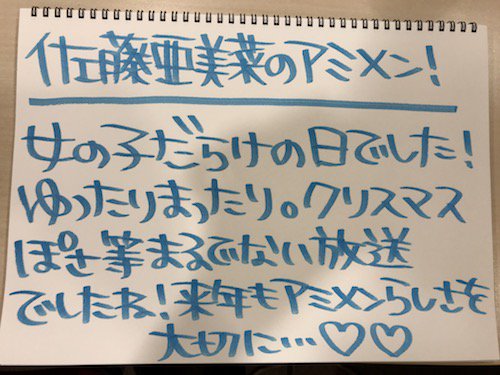 佐藤亜美菜のアミメン!
女の子だらけの日でした!
ゆったりまったり。クリスマス
ぽさ等まるでない放送
でしたね!来年もアミメンらしさを
大切に…♡♡